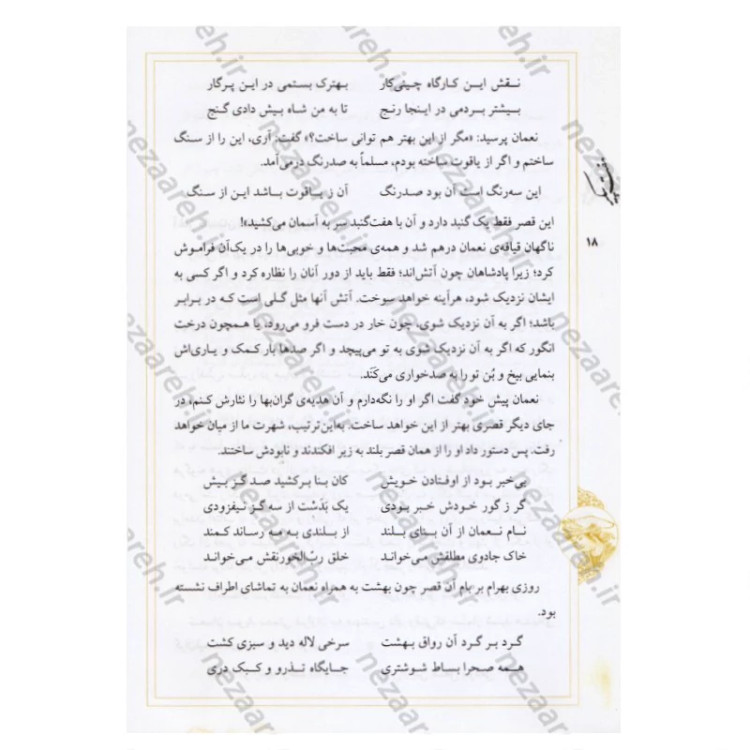 نقش این کارگاه چینی‌کار بهترک بستمی در این پرگار
بیشتر بردمی در اینجا رنج تا به من شاه بیش دادی گنج
نعمان پرسید: «مگر از این بهتر هم توانی ساخت؟» گفت: آری، این را از سنگ
ساختم و اگر از یاقوت ساخته بودم، مسلماً به صدرنگ درمی‌آمد.
این سه‌رنگ است آن بود صدرنگ آن ز یاقوت باشد این از سنگ
این قصر فقط یک گنبد دارد و آن با هفت‌گنبد سر به آسمان می‌کشید»!
ناگهان قیافه‌ی نعمان درهم شد و همه‌ی محبت‌ها و خوبی‌ها را در یک‌آن فراموش
۱۸
کرد؛ زیرا پادشاهان چون آتش‌اند؛ فقط باید از دور آنان را نظاره کرد و اگر کسی به
ایشان نزدیک شود، هرآینه خواهد سوخت. آتش آنها مثل گلی است که در برابر
باشد؛ اگر به آن نزدیک شوی، چون خار در دست فرو می‌رود، یا همچون درخت
انگور که اگر به آن نزدیک شوی به تو می‌پیچد و اگر صدها بار کمک و یاری‌اش
بنمایی بیخ و بُن تو را به صدخواری می‌کَنَد.
نعمان پیش خود گفت اگر او را نگه‌دارم و آن هدیه‌ی گران‌بها را نثارش کنم، در
جای دیگر قصری بهتر از این خواهد ساخت. به‌این‌ترتیب، شهرت ما از میان خواهد
رفت. پس دستور داد او را از همان قصر بلند به زیر افکندند و نابودش ساختند.
بی‌خبر بود از اوفتادن خویش کان بنا برکشید صد گز بیش
گر ز گور خودش خبر بودی یک بَدَست از سه گز نیفزودی
نام نعمان از آن بنای بلند از بلندی به مه رساند کمند
خاک جادوی مطلقش می‌خواند خلق ربّ‌الخورنقش می‌خواند
روزی بهرام بر بام آن قصر چون بهشت به همراه نعمان به تماشای اطراف نشسته
بود.
گرد بر گرد آن رواق بهشت سرخی لاله دید و سبزی کشت
همه صحرا بساط شوشتری جایگاه تذرو و کبک دری
nezaareh.ir